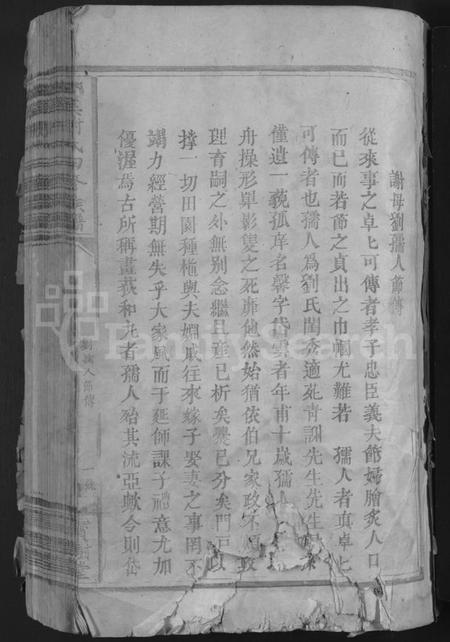 謝母劉孺人節傳
從來事之卓卓可傳者孝子忠臣義夫節婦膾炙人口
而已而若節之貞出之巾幗尤難若 孺人者真卓卓
可傳者也孺人爲劉氏閨秀適 先生先生
僅遺一藐孤庠名 字岱雲者年甫十歲孺人
舟操形單影隻之死靡他然始猶依伯兄家政不
理育嗣之外無別念繼且產已析矣爨已分矣門戶以
撐一切田園種植與夫姻戚往來嫁子娶妻之事罔不
竭力經營期無失乎大家風而于延師課子禮意尤加
優渥焉古所稱畫荻和丸者孺人殆其流亞歟今則岱
劉孺人節傳
FamilySearch